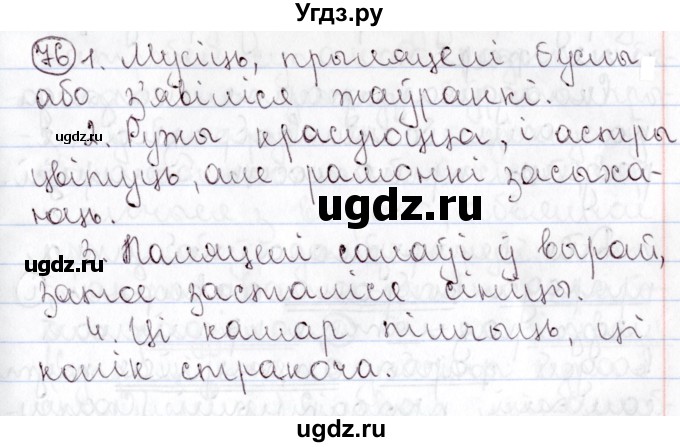 Угдз.ру
76 1. Мусіць, прыляцелі буслы
або з'явіліся жаўранкі.
ugdz.ru
2. Ружы красуюцца, і астры
цвітуць, але рамонкі засыха-
юць.
ugdz.ru
3. Паляцелі салаўі ў вырай,
ugdz.ru
затое засталіся сініцы.
4. Ці камар пішчыць, ці
конік стракоча.
ugdz.ru
ugdz.ru